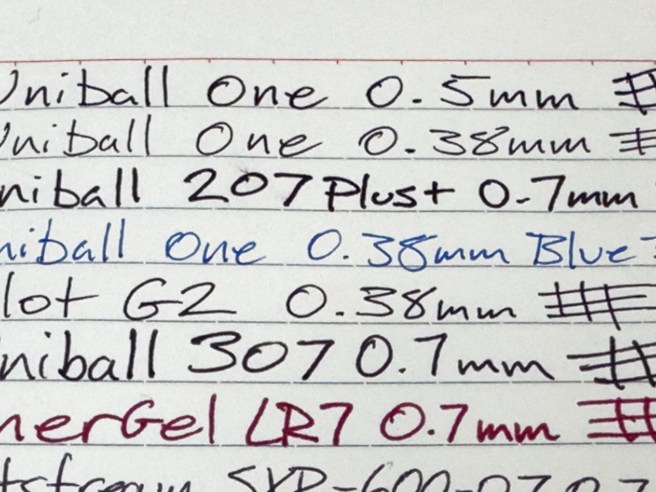 Uniball One 0.5mm
Uniball One 0.38mm
niball 207 Plus+ 0.7mm
niball One 0.38mm Blue
lot G2 0.38mm
niball 307 0.7mm
nerGel LR7 0.7mm
tstream SXP-600-07 0.7